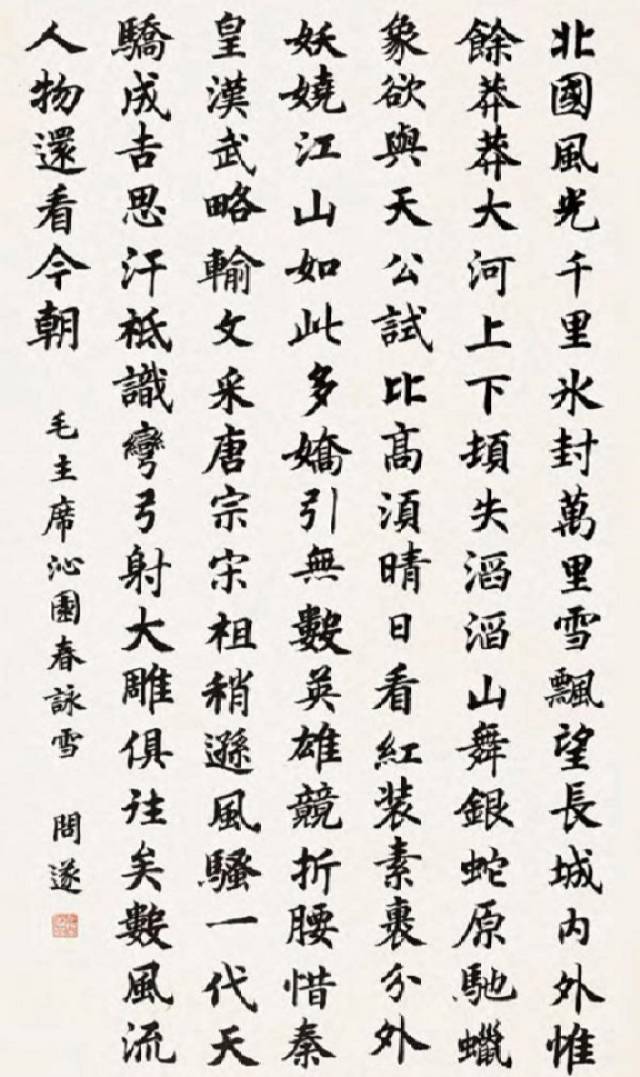 北國風光千里氷封萬里雪飄望長城内外惟
餘莽莽大河上下頓失滔滔山舞銀蛇原馳蠟
象欲與天公試比高須晴日看紅装素裹分外
妖嬈江山如此多嬌引無數英雄競折腰惜秦
皇漢武略輸文采唐宗宋祖稍遜風騷一代天
驕成吉思汗祗識彎弓射大雕俱往矣數風流
人物還看今朝
毛主席沁園春詠雪 問遂